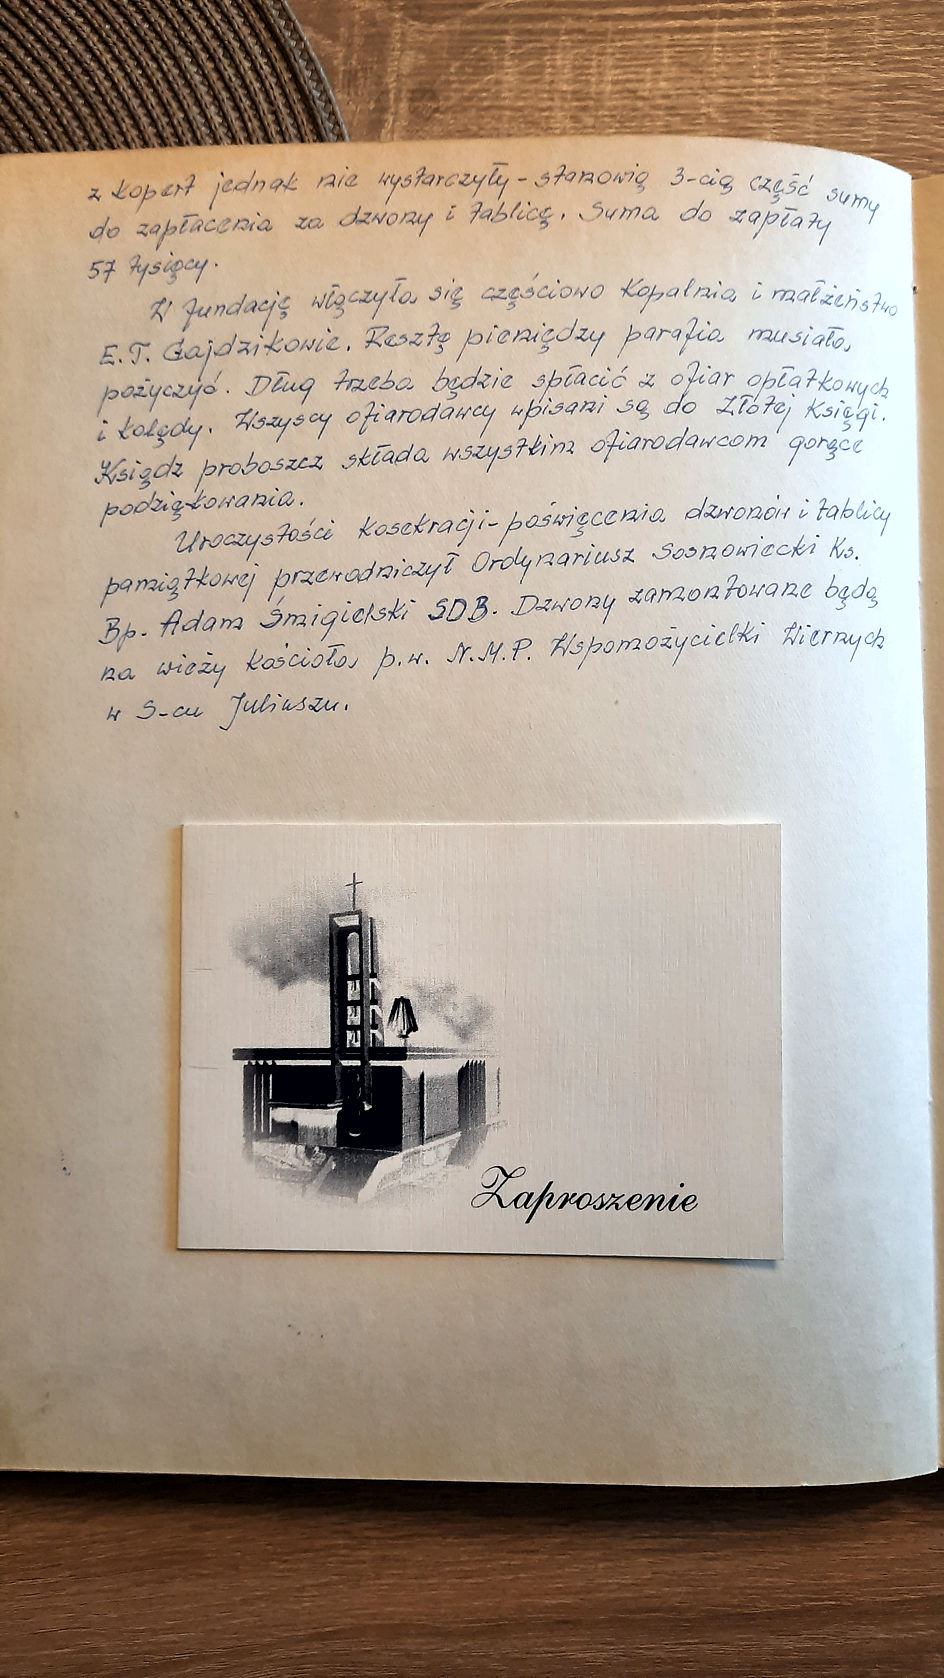 z kopert jednak nie wystarczyły - stanowią 3-cią część sumy
do zapłacenia za dzwony i tablicę. Suma do zapłaty
57 tysięcy.
W fundację włączyła się częściowo Kopalnia i małżeństwo
E.T. Gajdzikowie. Resztę pieniędzy parafia musiała
pożyczyć. Dług trzeba będzie spłacić z ofiar opłatkowych
i kolędy. Wszyscy ofiarodawcy wpisani są do Złotej Księgi.
Ksiądz proboszcz składa wszystkim ofiarodawcom gorące
podziękowania.
Uroczystości kosekracji - poświęcenia dzwonów i tablicy
pamiątkowej przewodniczył Ordynariusz Sosnowiecki Ks.
Bp. Adam Śmigielski SDB. Dzwony zamontowane będą
na wieży kościoła p.w. N.M.P. Wspomożycielki Wiernych
w S-cu Juliuszu.
Zaproszenie